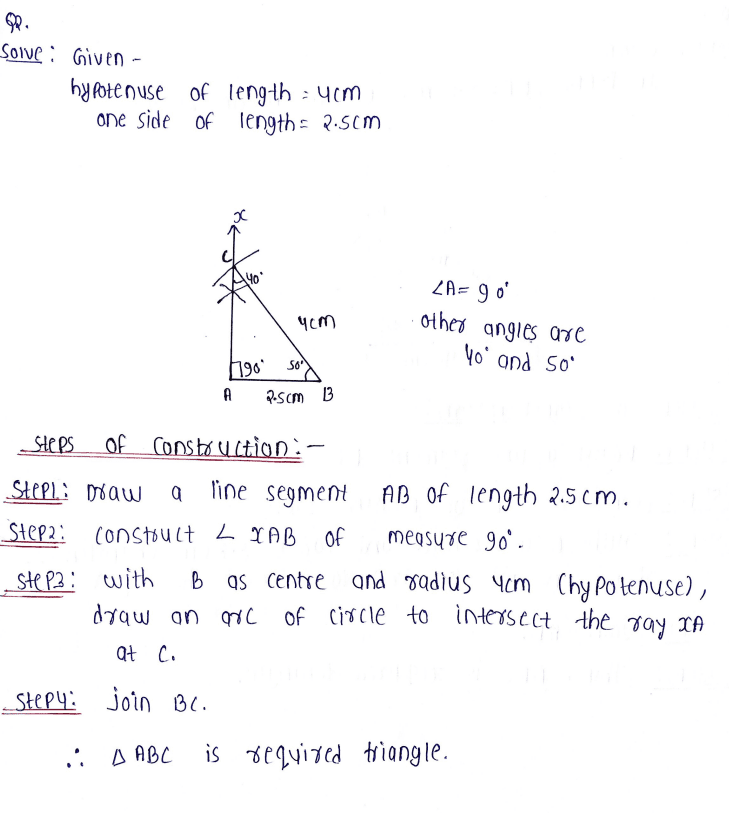 Q2.
Solve: Given -
hypotenuse of length = 4cm
one side of length = 2.5cm
x
C
40°
∠A= 90°
4cm
other angles are
40° and 50°
90° 50°
A 2.5cm B
Steps of Construction:-
Step1: Draw a line segment AB of length 2.5cm.
Step2: construct ∠ XAB of measure 90°.
Step3: with B as centre and radius 4cm (hypotenuse),
draw an arc of circle to intersect the ray XA
at C.
Step4: join BC.
∴ △ ABC is required triangle.